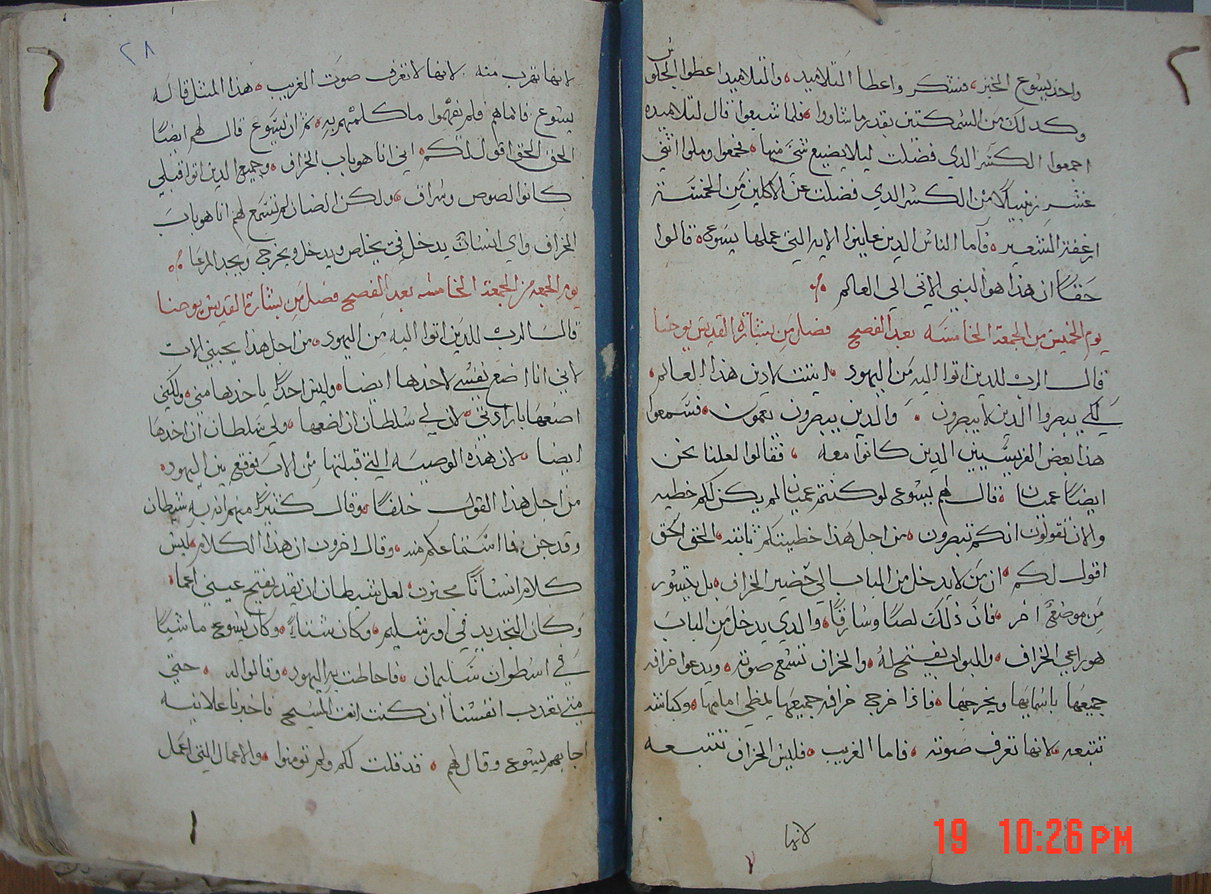 واخد يسوع الخبز، فشكر واعطا التلاميد، والتلاميد اعطوا الجلوس
وكدلك من السمكتين بقدر ما شاووا، ولما شبعوا قال لتلاميده
اجمعوا الكسر الدي فضلت ليلا يضيع شي منها، فجمعوا وملوا اثني
عشر زنبيلًا من الكسر الدي فضلت عن الاكلين من الخمسة
ارغفة الشعير، فاما الناس الدين عاينوا الايه التي عملها يسوع، قالوا
حقًا ان هدا هو النبي الاتي الي العالم
يوم الخميس من الجمعة الخامسه بعد الفصح فصل من بشارة القديس يوحنا
قال الرب للدين اتوا اليه من اليهود، اتيت لادين هدا العالم،
لكي يبصروا الدين لا يبصرون، والدين يبصرون يعمون، فسمعوا
هدا بعض الفريسيين الدين كانوا معه، فقالوا لعلنا نحن
ايضًا عميان، قال لهم يسوع لو كنتم عميان لم يكن لكم خطيه
والان تقولون انكم تبصرون، من اجل هدا خطيتكم ثابته، الحق الحق
اقول لكم، ان من لا يدخل من الباب الي حضير الخراف، بل يتسور
من موضعٍ اخر، فان دلك لصًا وسارقًا، والدي يدخل من الباب
هو راعي الخراف، والبواب يفتح له، والخراف تسمع صوته، ويدعوا خرافه
جميعها باسمايها ويخرجها، فادا اخرج خرافه جميعها يمضي امامها، وكباشه
تتبعه، لانها تعرف صوته، فاما الغريب، فليس الخراف تتبعه
لانها
٢٨
لانها تهرب منه، لانها لا تعرف صوت الغريب، هدا المتل قاله
يسوع، فاما هم فلم يفهموا ما كلمهم به، ثم ان يسوع قال لهم ايضًا
الحق الحق اقول لكم، اني انا هو باب الخراف، وجميع الدين اتوا قبلي
كانوا لصوص وسراق، ولكن الضان لم تسمع لهم انا هو باب
الخراف واي انسان يدخل في يخلص ويدخل ويخرج ويجد المرعا
يوم الجمعه من الجمعة الخامسه بعد الفصح فصل من بشارة القديس يوحنا
قال الرب للدين اتوا اليه من اليهود، من اجل هدا يحبني الاب
لاني انا اضع نفسي لاخدها ايضا، وليس احدًا ياخدها مني، ولكني
اضعها بارادتي، لان لي سلطان ان اضعها، ولي سلطان ان اخدها
ايضا، لان هده الوصيه التي قبلتها من الاب، فوقع بين اليهود،
من اجل هدا القول خلفًا، وقال كتيرًا منهم انه به شيطان
وقد جن، فما استماعكم منه، وقال اخرون ان هدا الكلام، ليس
كلام انسانًا مجنون، لعل شيطان ان يقدر يفتح عيني اعما،
وكان التجديد في اورشليم، وكان شتاءً، وكان يسوع ماشيًا
في اسطوان سليمان، فاحاطت به اليهود، وقالوا له، حتي
متي تعدب انفسنا ان كنت انت المسيح فاخبرنا علانيه
اجابهم يسوع وقال لهم، قد قلت لكم ولم تومنوا، والاعمال التي اعمل
19 10:26 PM